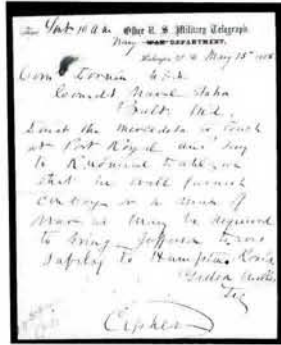 Sent 10 a.m. Office U. S. Military Telegraph,
Navy WAR DEPARTMENT,
May 15th
Com Dornin U.S.N.
Comdt Naval Station
Balt Md.
Direct the Mercedita to touch
at Port Royal and say
to R. Admiral
that he will furnish
convoy or a man of
war as may be required
to bring Jefferson Davis
safely to Hampton Roads
Gideon Welles
Secy
Cipher